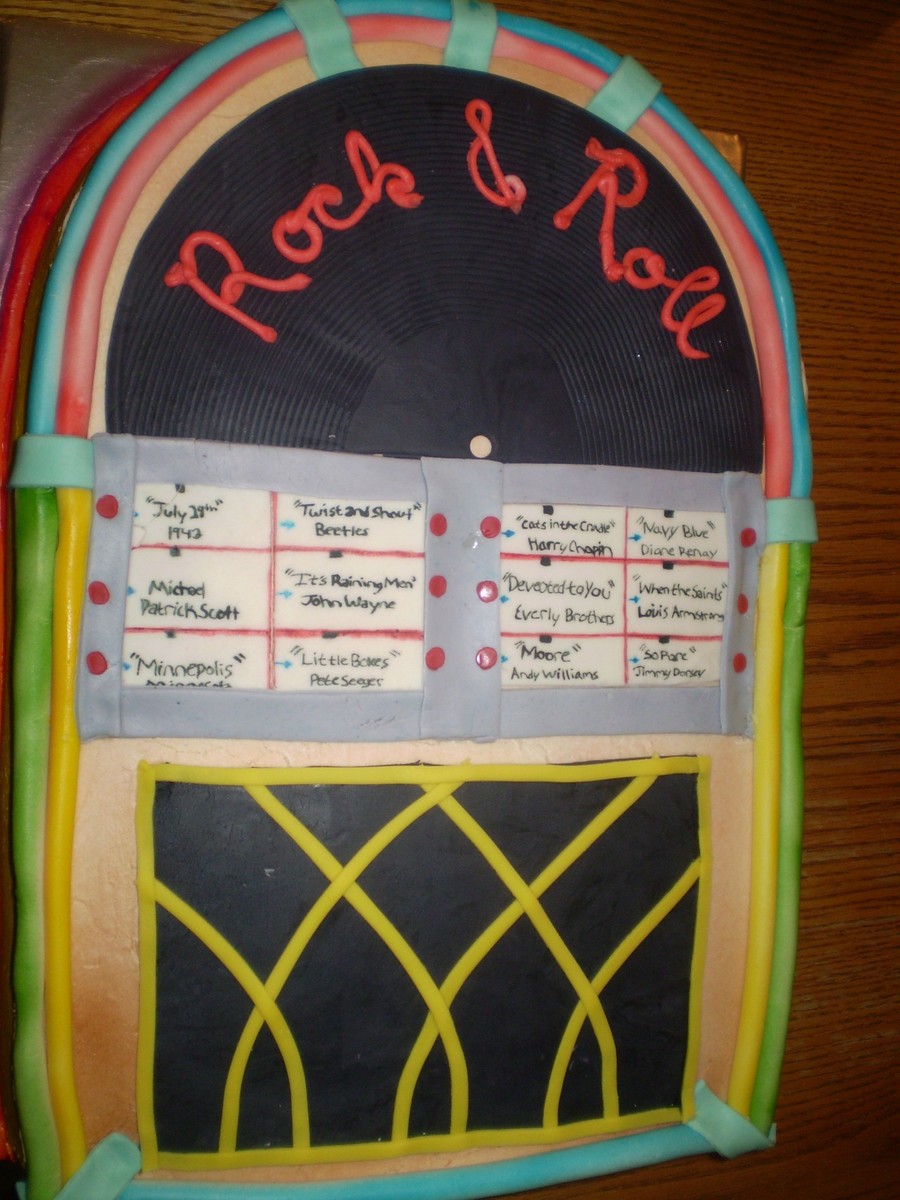 Rock & Roll
"July 29th"
1942
Michael
Patrick Scott
"Minnepolis"
"Twist and Shout"
Beetles
"It's Raining Men"
John Wayne
"Little Boxes"
Pete Seeger
"Cats in the Cradle"
Harry Chapin
"Devoted to You"
Everly Brothers
"Moore"
Andy Williams
"Navy Blue"
Diane Renay
"When the Saints"
Louis Armstrong
"So Rare"
Jimmy Dorsey